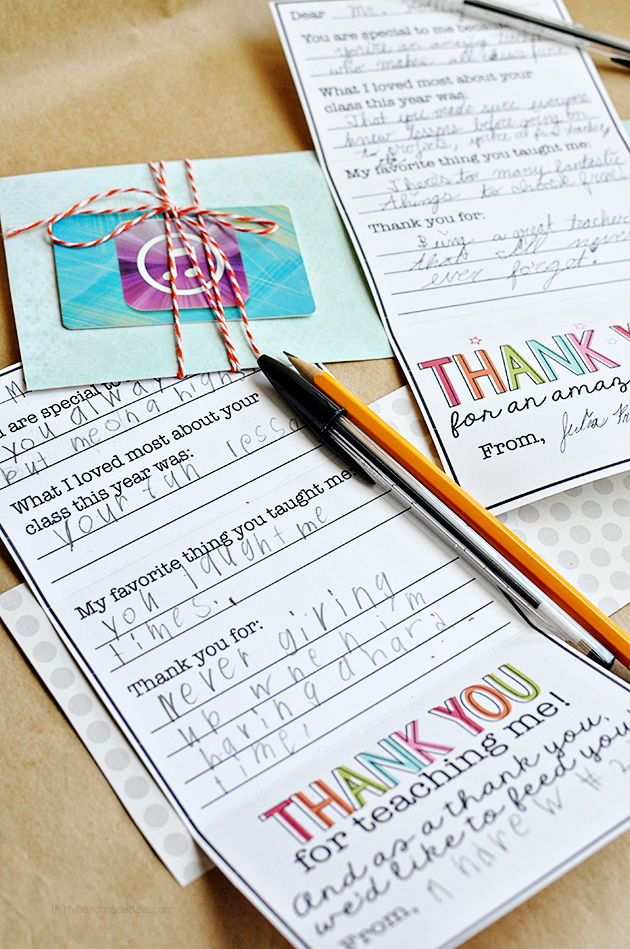 Dear Mr.
You are special to me because
You're an amazing teacher
who makes all
What I loved most about your
class this year was:
That you made sure everyone
knew lessons before going on
to projects,
My favorite thing you taught me:
There's too many fantastic
things to choose from!
Thank you for:
Being a great teacher
that I'll never
ever forget.
THANK Y
for an amaz
From, Julia
are special to
you alway
but me on a high
What I loved most about your
class this year was:
your fun lesso
My favorite thing you taught me:
you taught me
times.
Thank you for:
Never giving
up when im
having a hard
time!
THANK YOU
for teaching me!
And as a thank you,
we'd like to feed you!
From, Andrew #2
thirtyhandmadedays.com